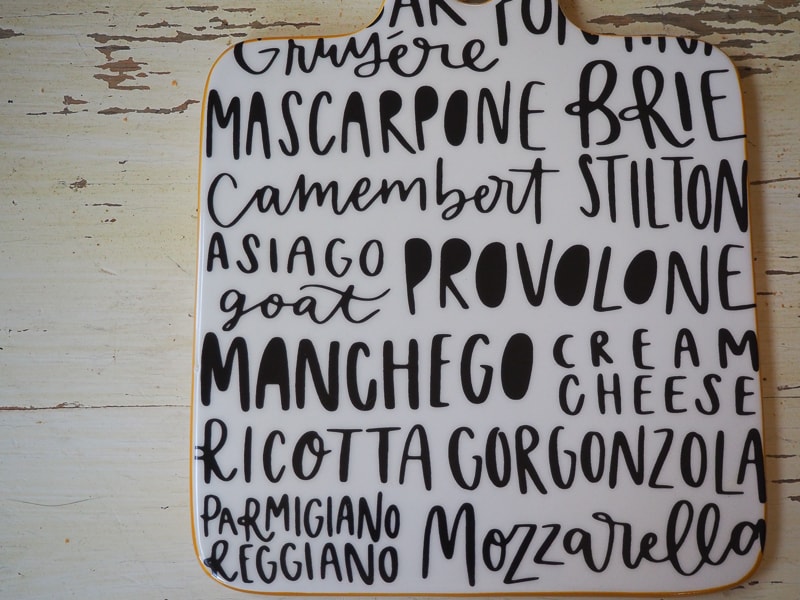 Gruyére
MASCARPONE BRIE
Camembert STILTON
ASIAGO PROVOLONE
goat
MANCHEGO CREAM
CHEESE
RICOTTA GORGONZOLA
PARMIGIANO Mozzarella
REGGIANO